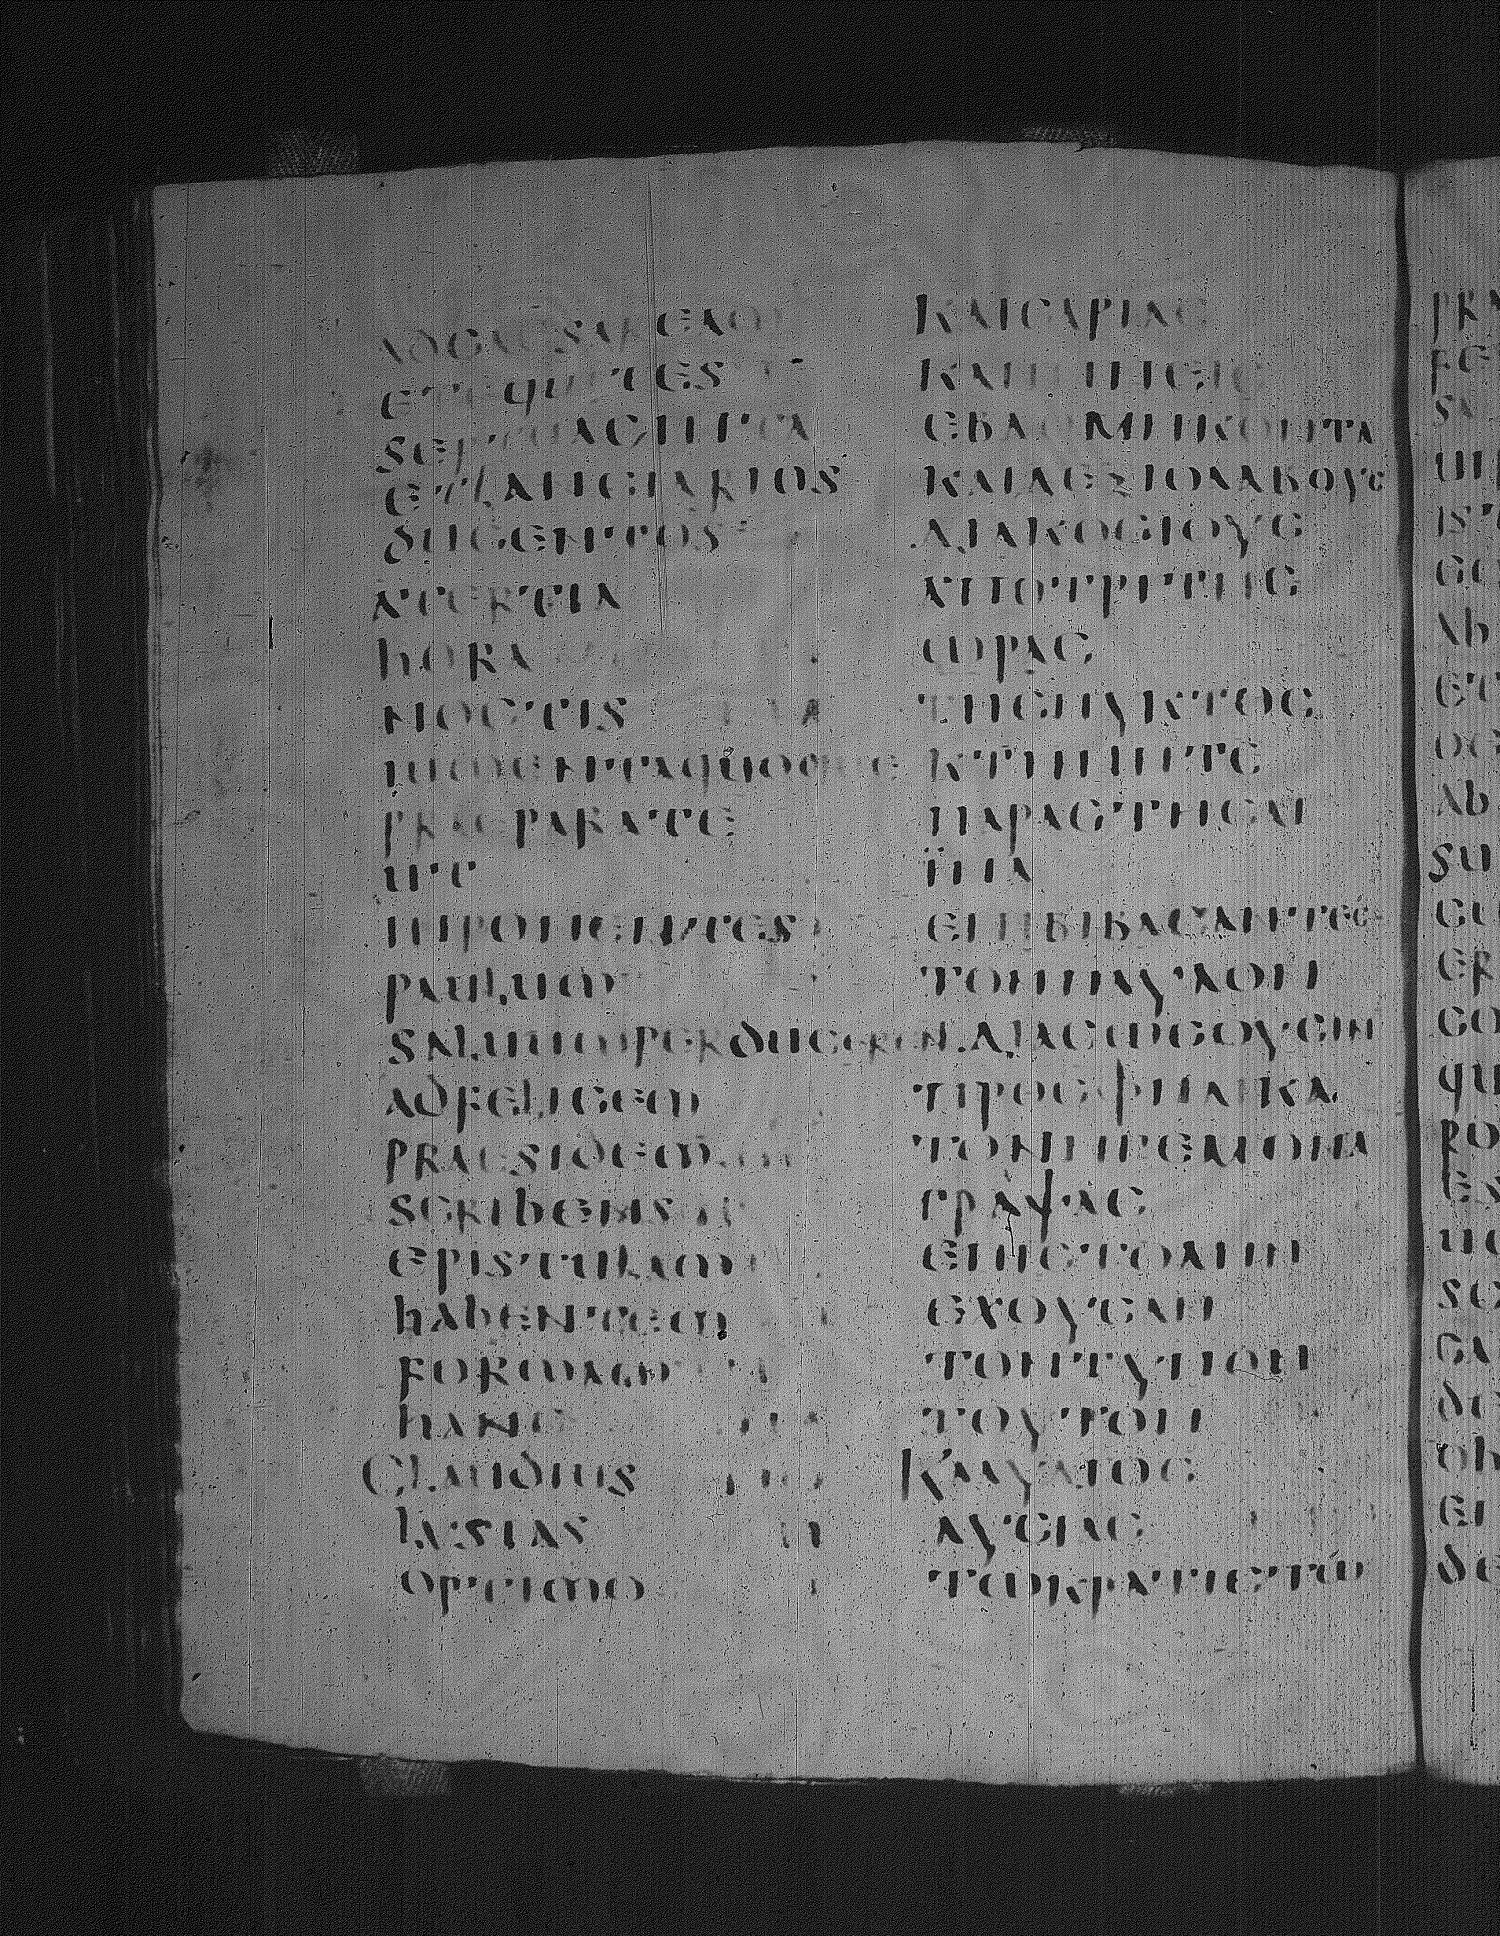 ad caesaream
et equites
septuaginta
et lanciarios
ducentos
a tertia
hora
noctis
iumenta quoque
praeparate
ut
inponentes
paulum
salbum perducerent
ad felicem
praesidem
scribens
epistulam
habentem
formam
hanc
Claudius
lysias
optimo
ΚΑΙCΑΡΙΑC
ΚΑΙ ΙΠΠΕΙC
ΕΒΔΟΜΗΚΟΝΤΑ
ΚΑΙ ΔΕΞΙΟΛΑΒΟΥC
ΔΙΑΚΟCΙΟΥC
ΑΠΟ ΤΡΙΤΗC
ΩΡΑC
ΤΗC ΝΥΚΤΟC
ΚΤΗΝΗ ΤΕ
ΠΑΡΑCΤΗCΑΙ
ΪΝΑ
ΕΠΙΒΙΒΑCΑΝΤΕC
ΤΟΝ ΠΑΥΛΟΝ
ΔΙΑCΩCΟΥCΙΝ
ΠΡΟC ΦΗΛΙΚΑ
ΤΟΝ ΗΓΕΜΟΝΑ
ΓΡΑΨΑC
ΕΠΙCΤΟΛΗΝ
ΕΧΟΥCΑΝ
ΤΟΝ ΤΥΠΟΝ
ΤΟΥΤΟΝ
ΚΛΑΥΔΙΟC
ΛΥCΙΑC
ΤΩ ΚΡΑΤΙCΤΩ